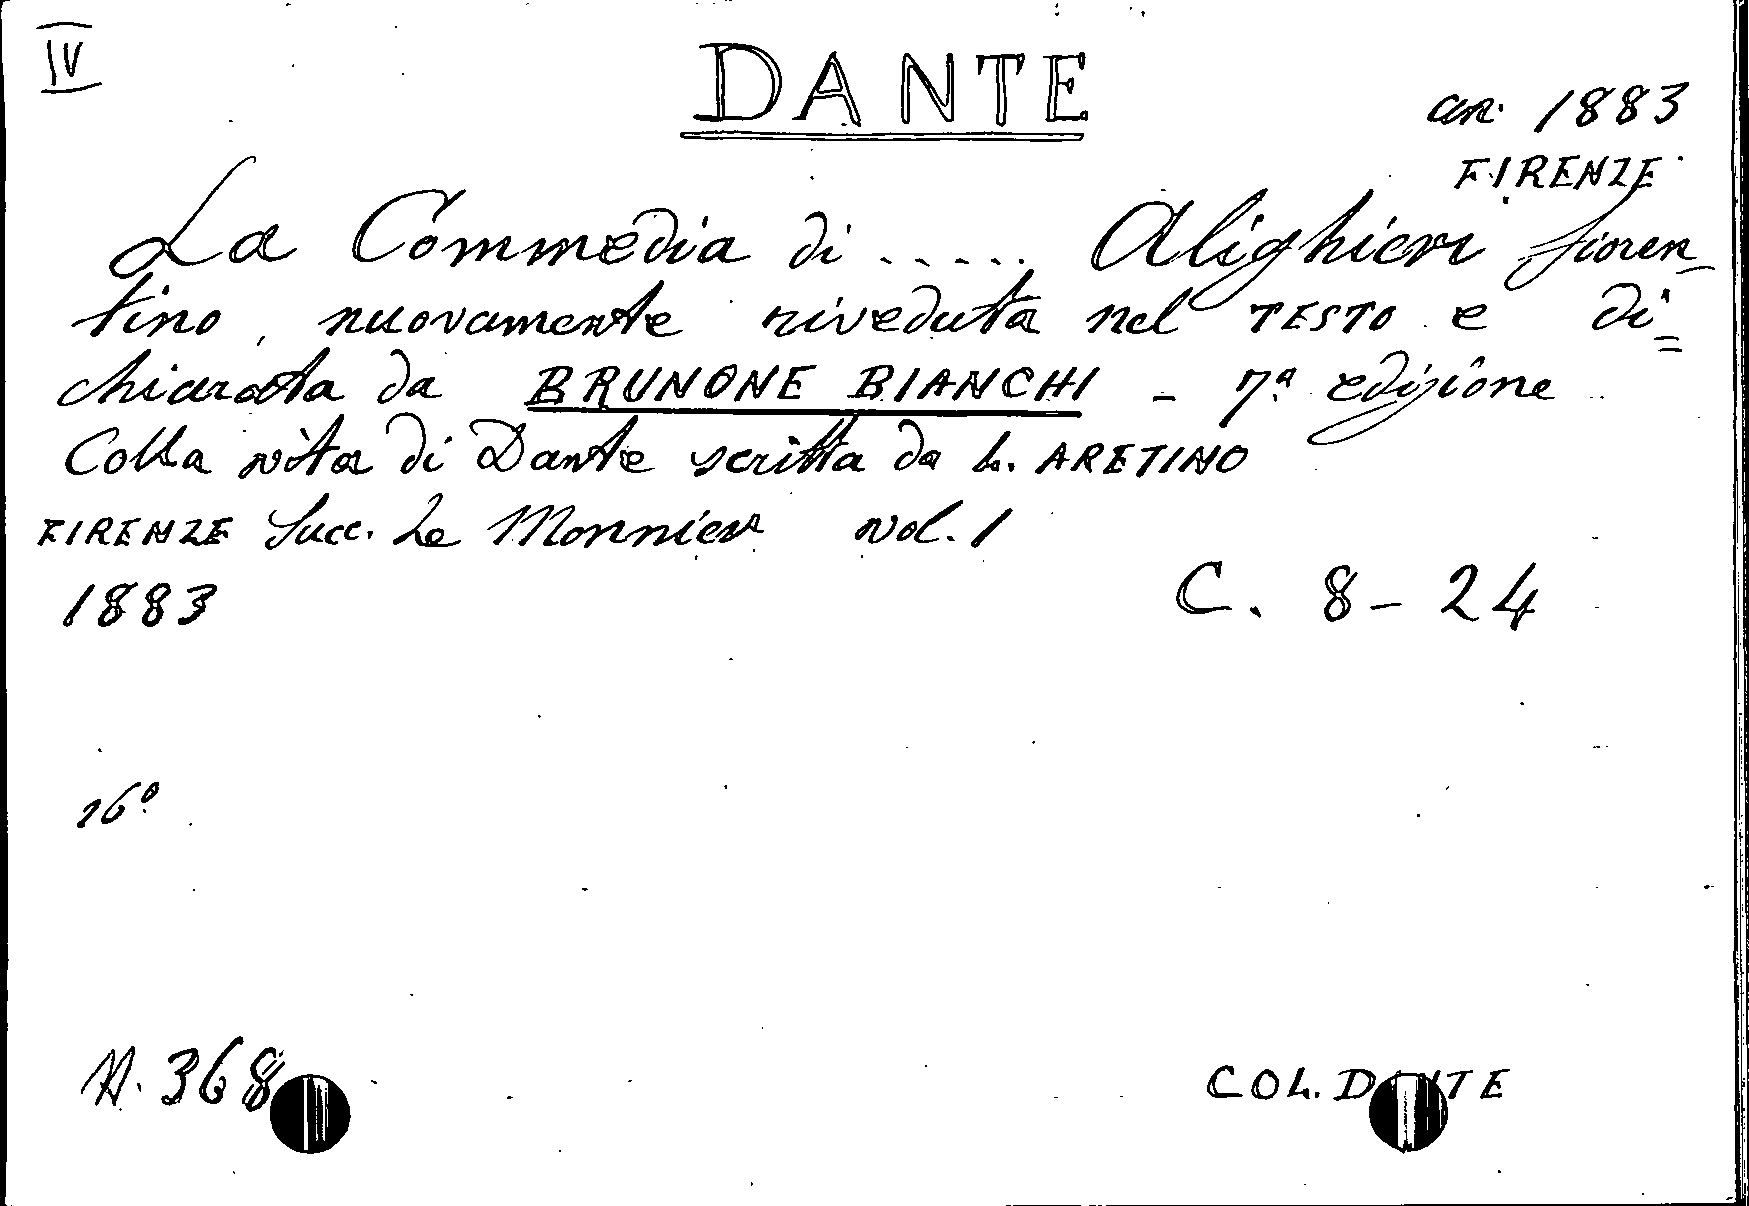 IV
DANTE
an. 1883
FIRENZE
La Commedia di ..... Alighieri fioren-
tino, nuovamente riveduta nel TESTO e di=
chiarata da BRUNONE BIANCHI - 7ª edizione
Colla vita di Dante scritta da L. ARETINO
FIRENZE Succ. Le Monnier vol. 1
1883
C. 8-24
16º
N. 368
COL. DANTE